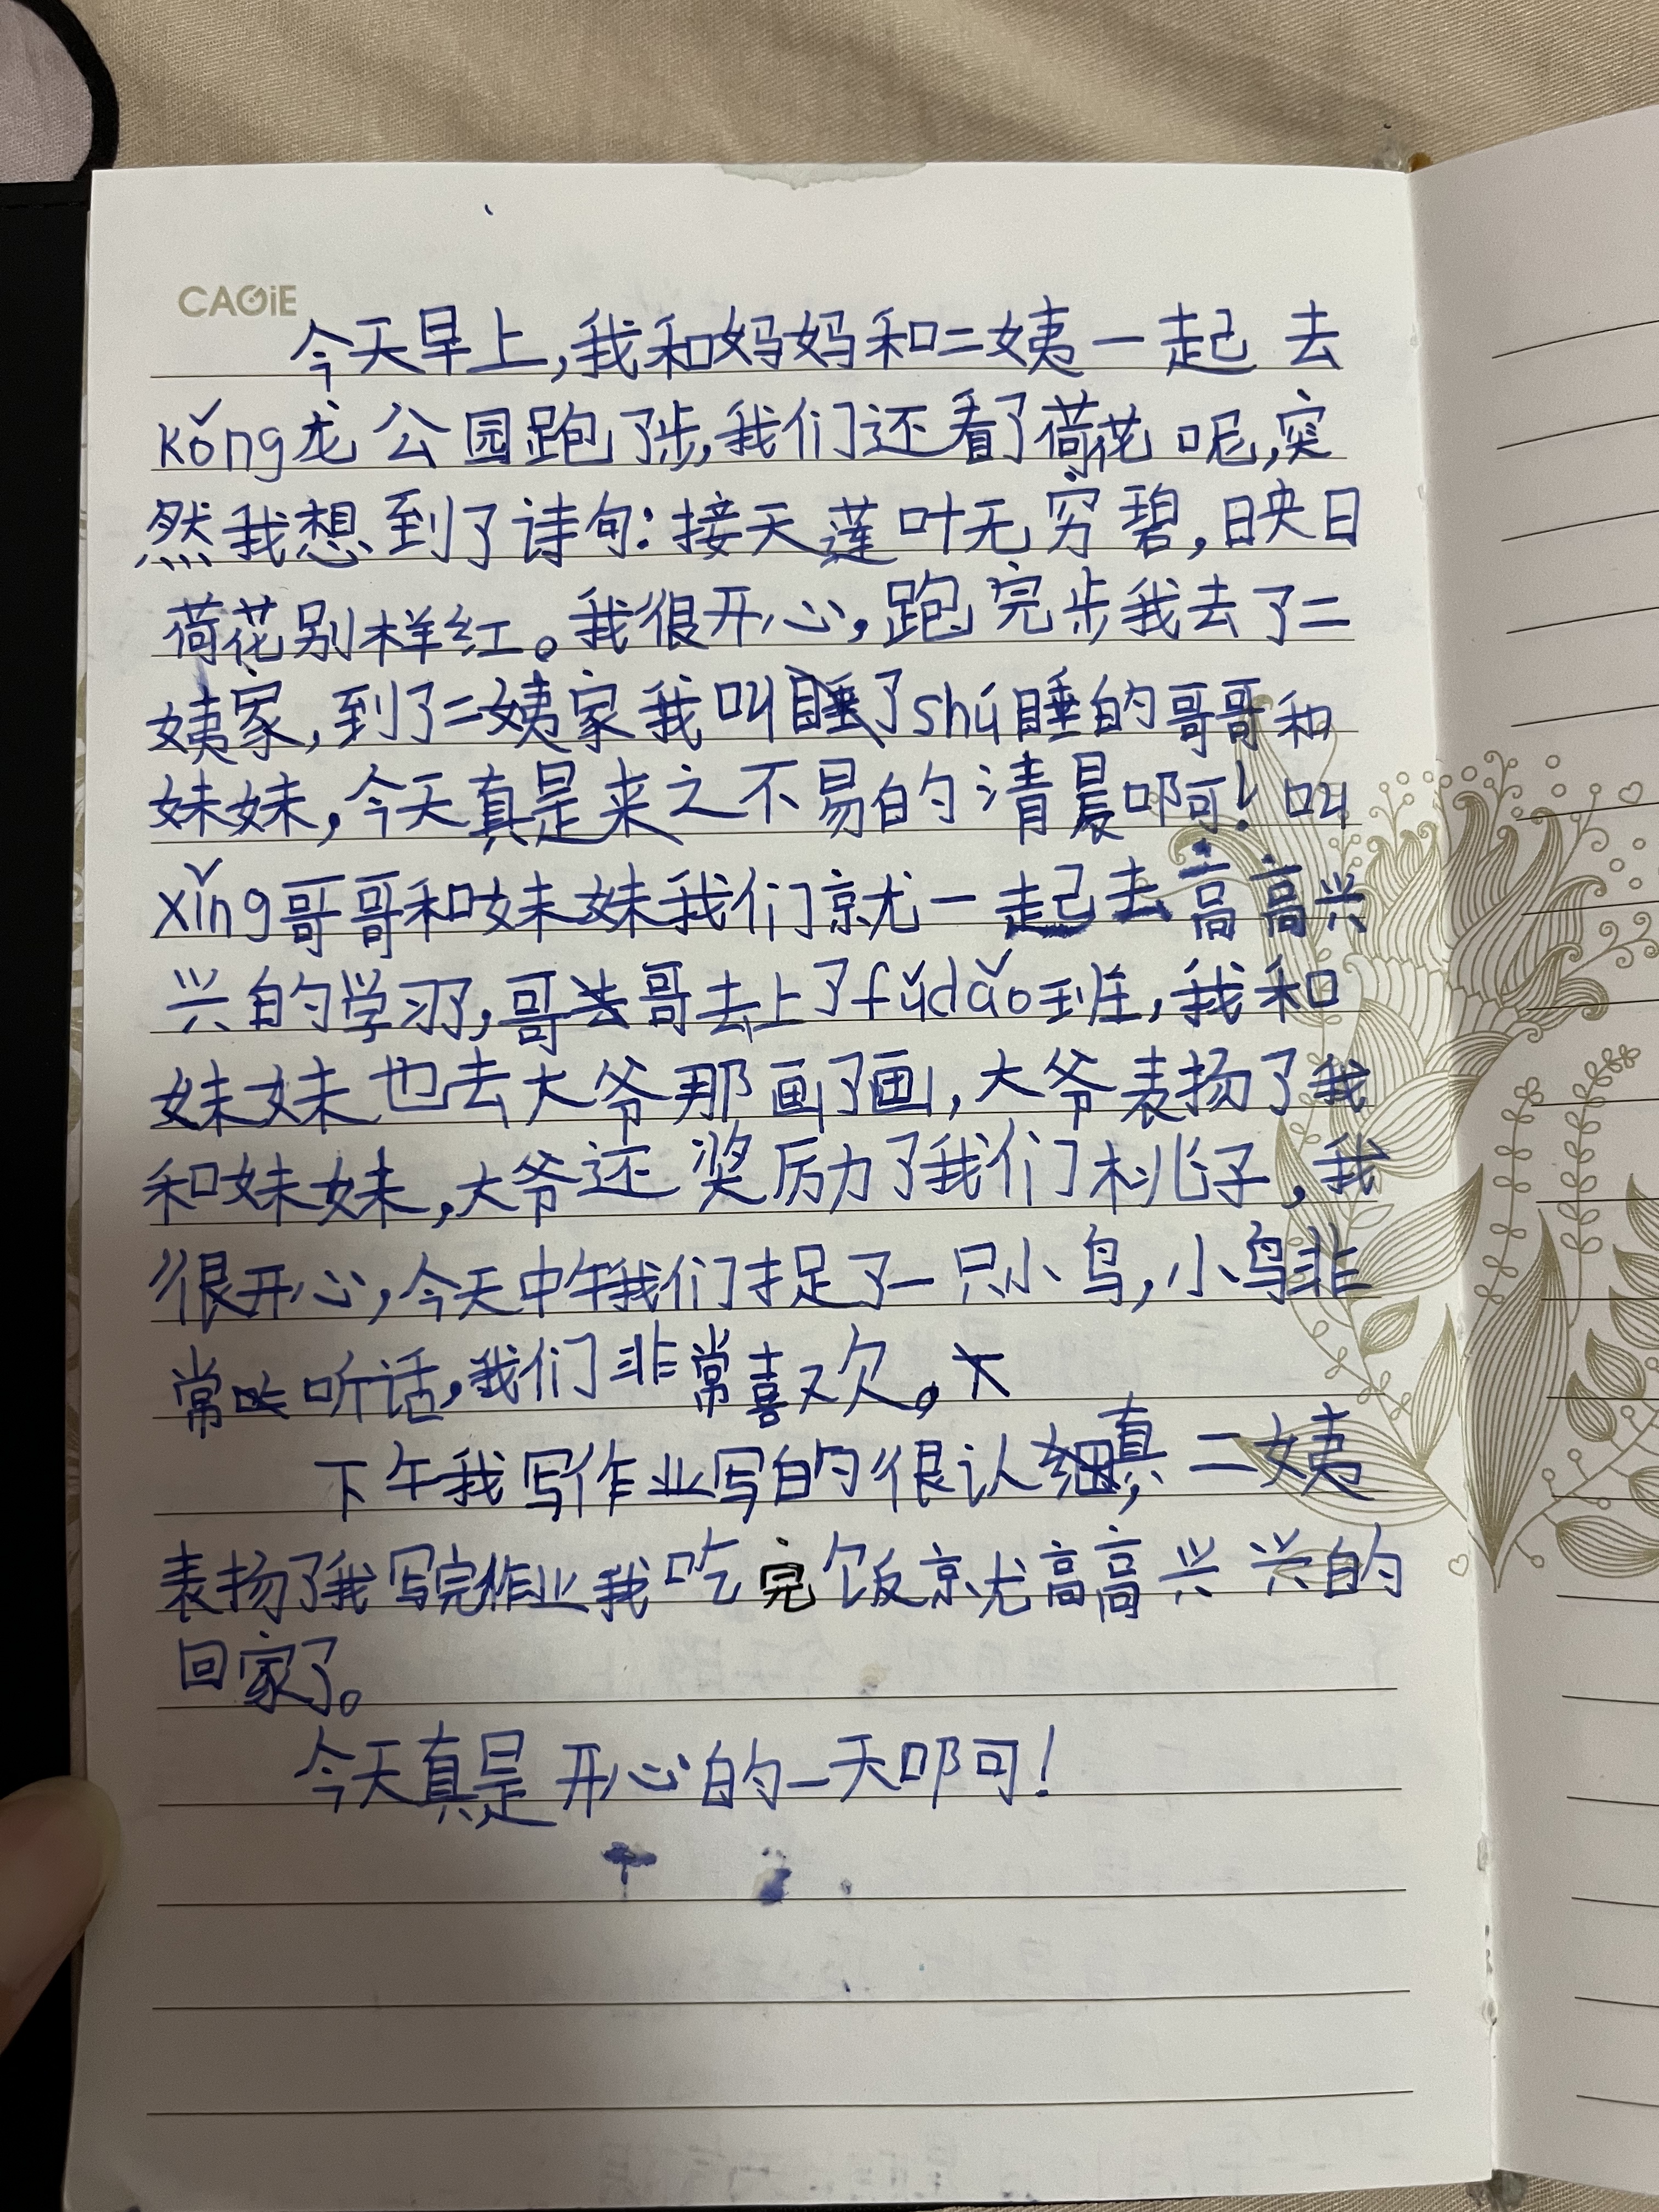 CAGiE
今天早上,我和妈妈和二姨一起去
kǒng龙公园跑了步,我们还看了荷花呢,突
然我想到了诗句:接天莲叶无穷碧,映日
荷花别样红。我很开心,跑完步我去了二
姨家,到了二姨家我叫了shú睡的哥哥和
妹妹,今天真是来之不易的清晨啊!叫
xǐng哥哥和妹妹我们就一起去高高兴
兴的学习了,哥哥去上了fǔdǎo班,我和
妹妹也去大爷那画了画,大爷表扬了我
和妹妹,大爷还奖励了我们桃子,我
很开心,今天中午我们捉了一只小鸟,小鸟非
常听话,我们非常喜欢。
下午我写作业写的很认真,二姨
表扬了我写完作业我吃完饭就高高兴兴的
回家了。
今天真是开心的一天啊!